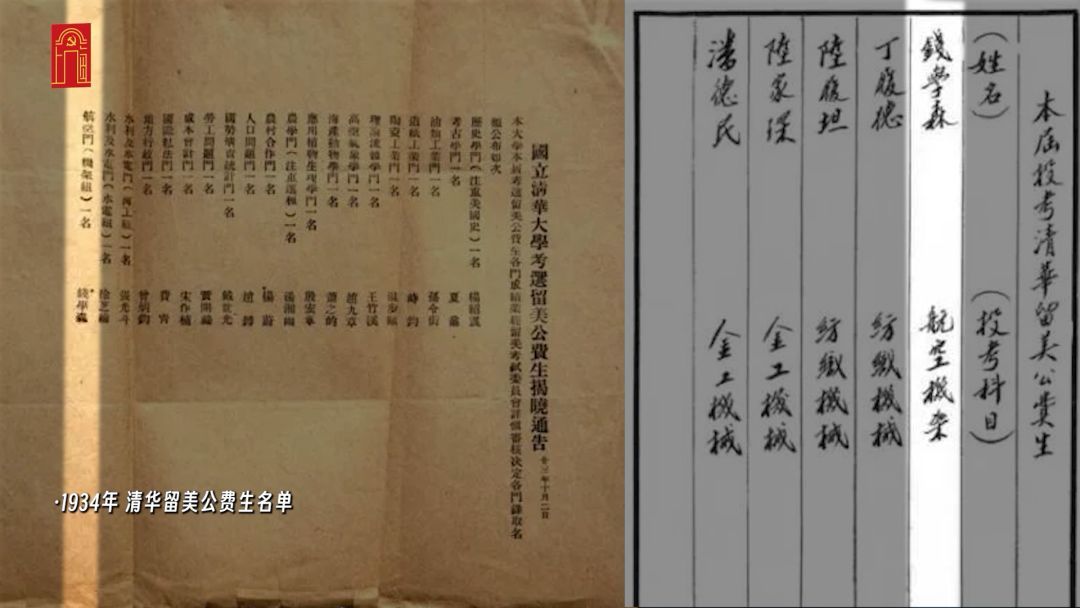 國立清華大學考選留美公費生揭曉通告 廿三年十月二日
本大學本屆考選留美公費生各門成績業經留美考試委員會詳慎審核決定各門錄取名
額公布如次
歷史學門(注重美國史)一名 楊紹震
考古學門一名 夏鼐
油類工業門一名 孫令銜
造紙工業門一名 時鈞
陶瓷工業門一名 溫步頤
理論流體學門一名 王竹溪
高空氣象學門一名 趙九章
海產動物學門一名 蕭之的
應用植物生理學門一名 殷宏章
農學門(注重選種)一名 湯湘雨
農村合作門一名 楊蔚
人口問題門一名 趙鐸
國勢清查統計門一名 戴世光
勞工問題門一名 黃開祿
成本會計門一名 宋作楠
國際私法門一名 費青
地方行政門一名 曾炳鈞
水利及水電門(海工組)一名 張光斗
水利及水電門(水電組)一名 徐芝綸
航空門(機架組)一名 錢學森
·1934年 清华留美公费生名单
本屆投考清華留美公費生
(姓名) (投考科目)
錢學森 航空機架
丁履德 紡織機械
陸履坦 紡織機械
陸家琛 金工機械
潘德民 金工機械